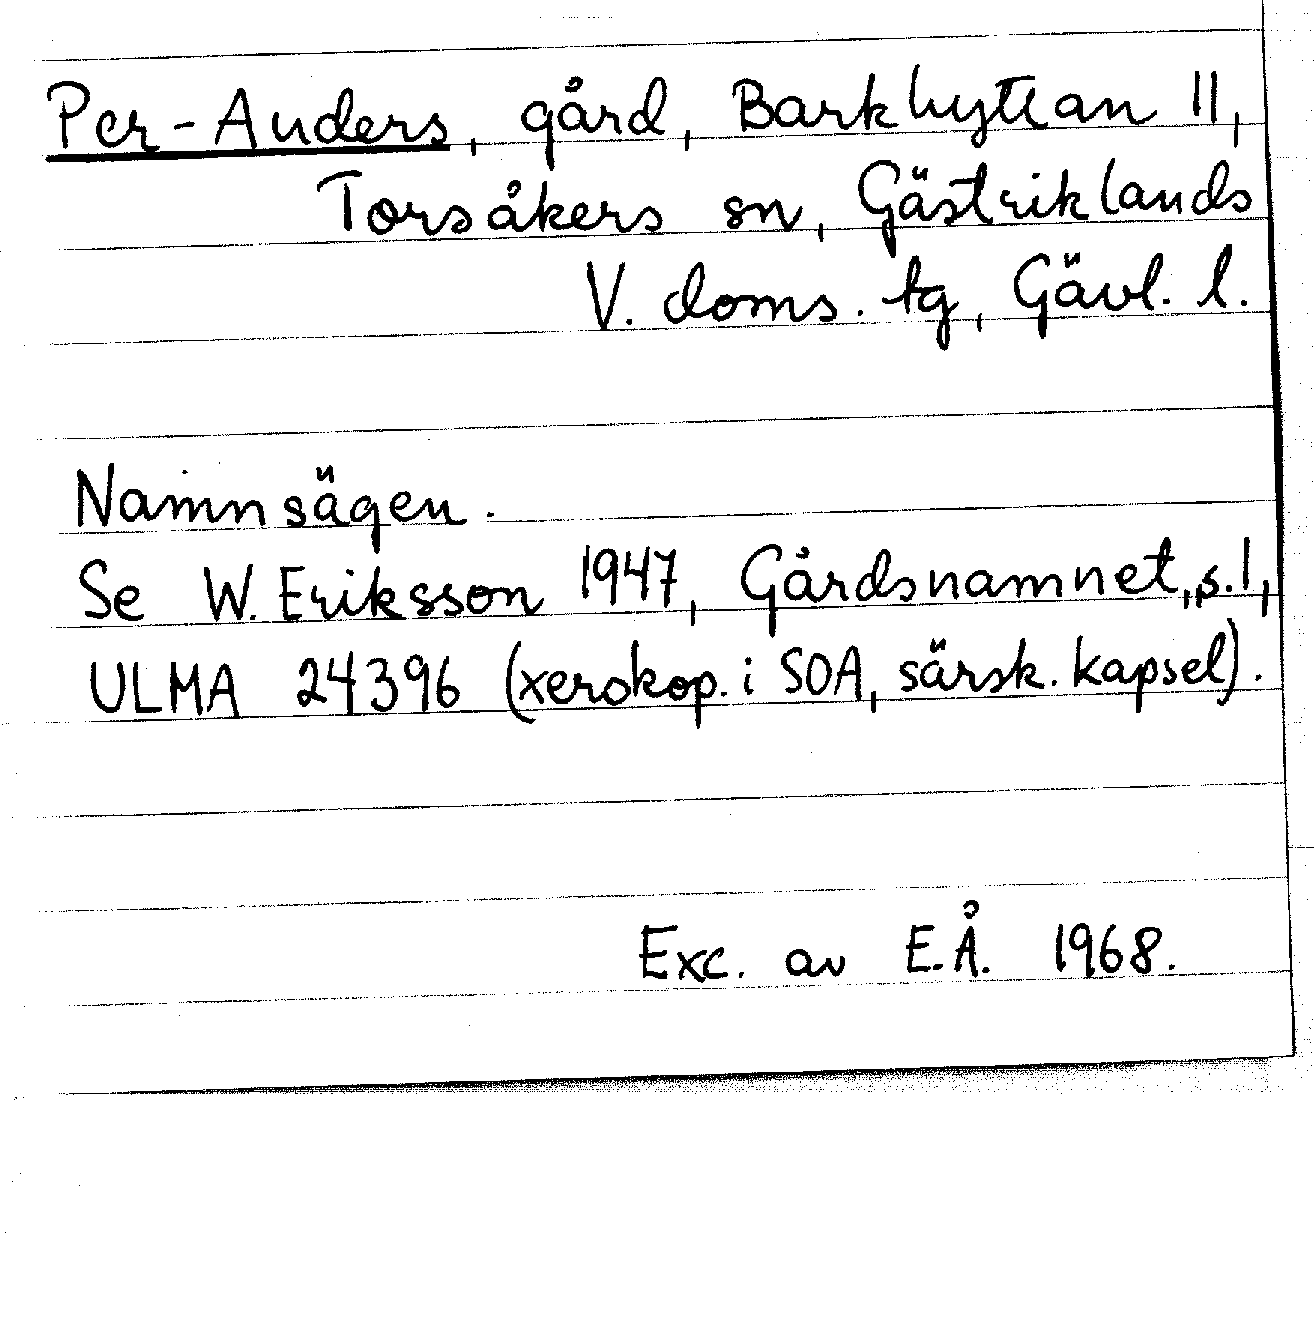 Per-Anders, gård, Barkhyttan 11,
Torsåkers sn, Gästriklands
V. doms. tg, Gävl. l.
Namnsägen.
Se W. Eriksson 1947, Gårdsnamnet, s. 1,
ULMA 24396 (xerokop. i SOA, särsk. kapsel).
Exc. av E.Å. 1968.